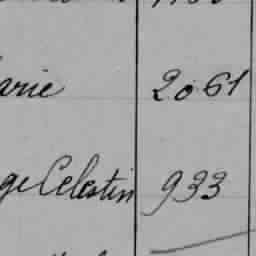 arie 2061
ge Celestin 933